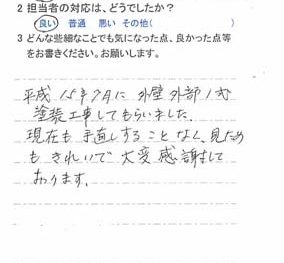 2 担当者の対応は、どうでしたか?
良い 普通 悪い その他(
3 どんな些細なことでも気になった点、良かった点等
をお書きください。お願いします。
平成15年7月に 外壁外部1式
塗装工事してもらいました。
現在も手直しすることなく、見ため
もきれいで大変感謝して
おります。